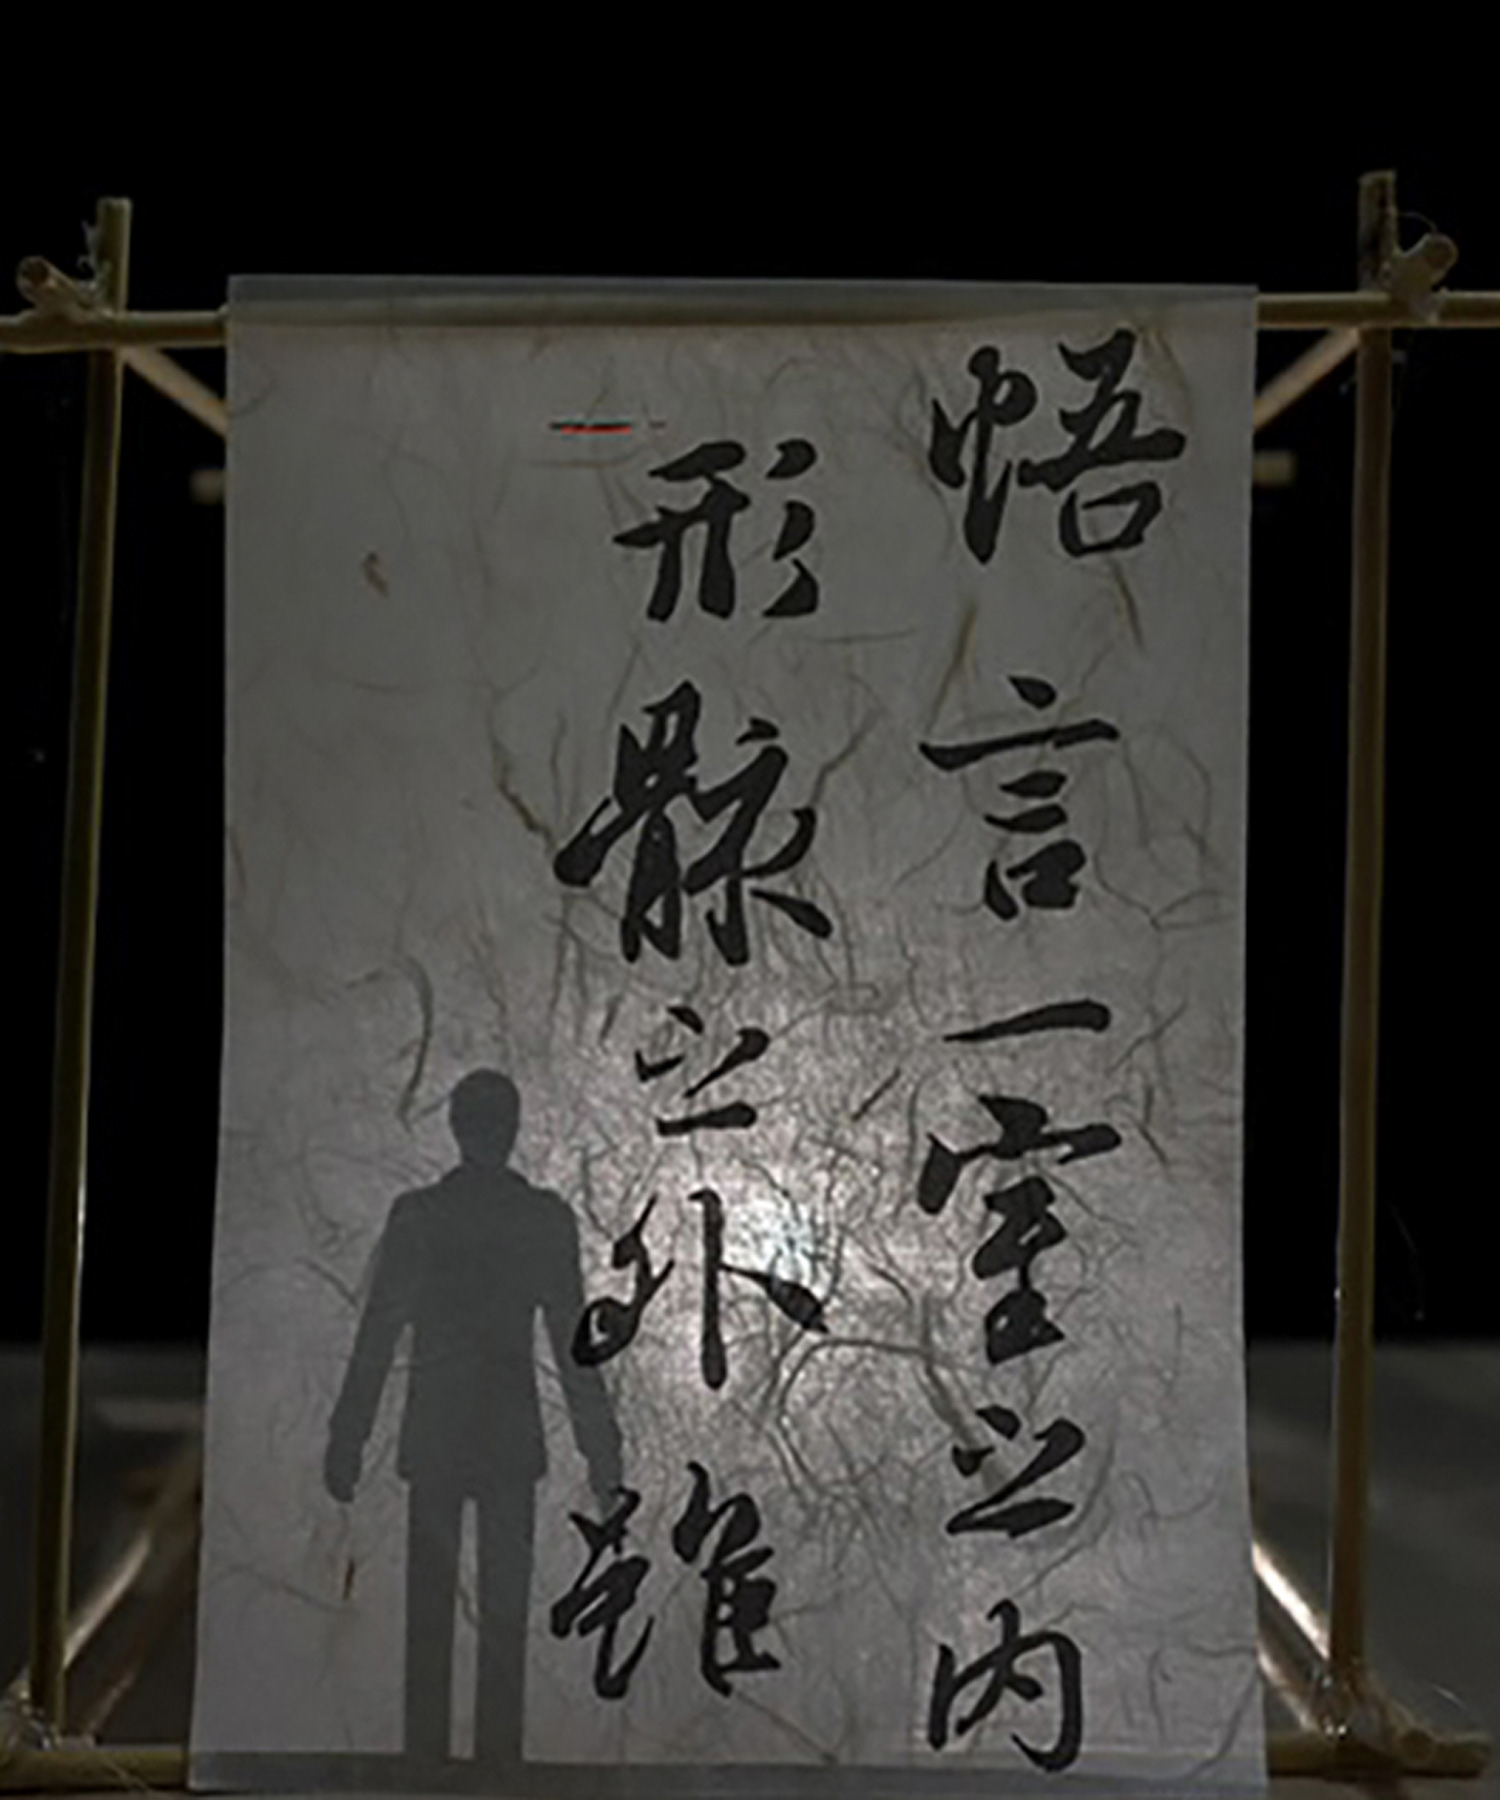 悟言一室之内
形骸之外雖